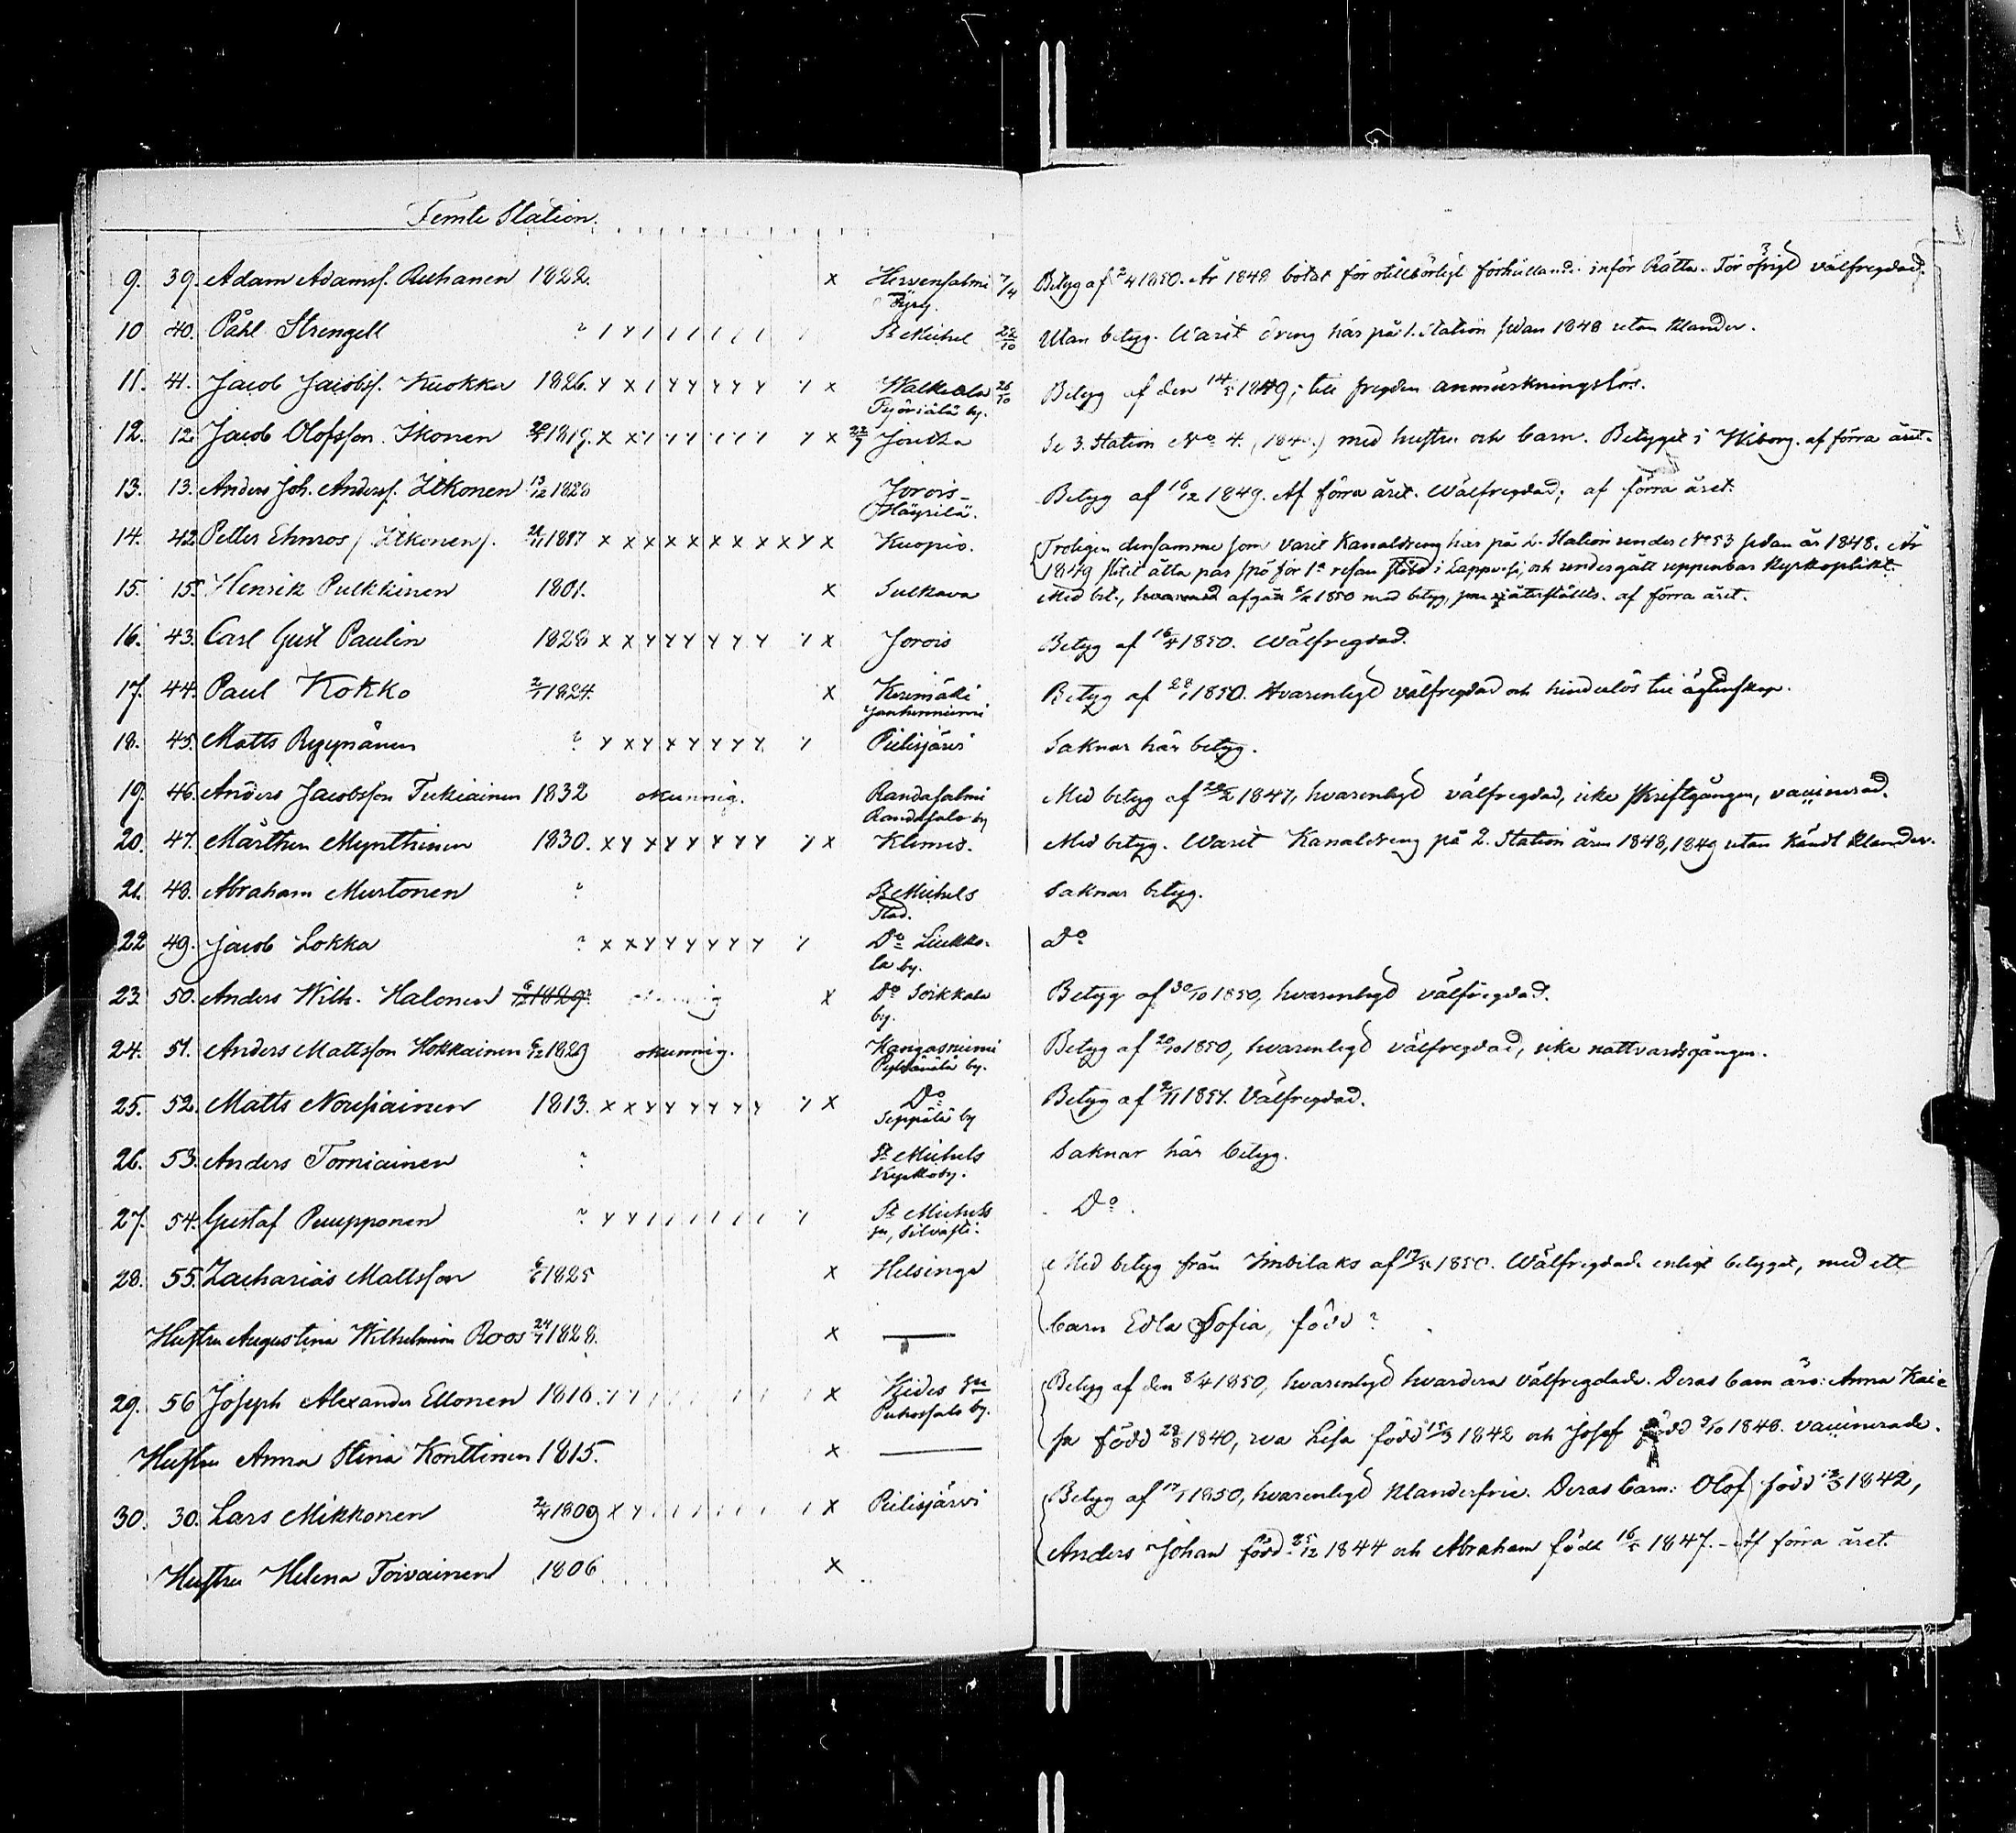 Femte Station.
9. 39. Adam Adamss. Ruhanen 1822. x Hirvensalmi 7/4 Betyg af 2/4 1850. År 1848 bötat för otillbörligt förhållande inför Rätta. För öfrigt välfregdad.
10 40. Påhl Strengell ? St Michel 22/10 Utan betyg. Varit dreng här på 1. Station sedan 1848 utan klander.
11. 41. Jacob Jacobss. Kuokka 1826. x Walkeala 26/10 Betyg af den 14/5 1849; till fregden anmärkningslös.
by.
12. 12. Jacob Olofsson Ikonen 1819. x x x 22/7 Joutza Se 3. Station No 4. med hustru och barn. Betyget i Wiborg. af förra året.
13. 13. Anders Joh. Anderss. Itkonen 13/12 1828 Jorois- Betyg af 16/12 1849. Af förra året. Wälfregdad; af förra året.
Häyrilä.
14. 42. Petter Ehnros / Itkonen /. 1817 x x x x x x x x x x x Kuopio. Troligen densamme som varit Kanaldreng här på 2. Station under No 53 sedan år 1848. År
1849 slitit åtta par spö för 1a resan stöld i Lappvesi, och undergått uppenbar kyrkoplikt.
15. 15. Henrik Pulkkinen 1801. x Sulkava Med bet., afgått 1850 med betyg, som återställts. af förra året.
16. 43. Carl Gust Paulin 1828 x x x x x x x x x x Jorois Betyg af 16/4 1850. Wälfregdad.
17. 44. Paul Kokko 1824. x Kerimäki Betyg af 28/1 1850. Hvarenligt välfregdad och hinderlös till ägtenskap.
18. 45. Matts Ryynänen ? x x x x x x x x x Pielisjärvi Saknar här betyg.
19. 46. Anders Jacobsson Tukiainen 1832 okunnig. Randasalmi Med betyg af 1847, hvarenligt välfregdad, icke skriftgången, vaccinerad.
Randasalo by
20. 47. Mårthen Mynthinen 1830. x x x x x x x x x x Klimis. Med betyg. Warit Kanaldreng på 2. Station åren 1848, 1849 utan kändt klander.
21. 48. Abraham Murtonen ? St Michels Saknar betyg.
Stad.
22 49. Jacob Lokka ? x x x x x x x x x Do Liukko- Do
la by.
23 50. Anders Wilh. Halonen 1829. x Do Soikkala Betyg af 30/10 1850, hvarenligt välfregdad.
by.
24. 51. Anders Mattsson Hokkainen 6/12 1829 okunnig. Kangasniemi Betyg af 20/10 1850, hvarenligt välfregdad, icke nattvardsgången.
by.
25. 52. Matts Nousiainen 1813. x x x x x x x x x x Do Betyg af 1851. Välfregdad.
Seppälä by
26. 53. Anders Torniainen ? St Michels Saknar här betyg.
Kyrkoby.
27. 54. Gustaf Puupponen ? St Michels Do.
sn, Silvasti.
28. 55. Zacharias Mattsson 1825 x Helsinge Med betyg från Imbilaks af 1850. Wälfregdade enligt betyget, med ett
Hustru Augustina Wilhelmina Roos 24/7 1828. x — barn Edla Sofia, född ?
29. 56 Joseph Alexander Ellonen 1816. x Kides sn Betyg af den 8/4 1850, hvarenligt hvardera välfregdade. Deras barn äro: Anna Kai-
by.
Hustru Anna Stina Konttinen 1815. x — sa född 28/8 1840, Eva Lisa född 15/3 1842 och Josef född 9/10 1848. vaccinerade.
30. 30. Lars Mikkonen 1809 x Pielisjärvi Betyg af 1850, hvarenligt klanderfrie. Deras barn: Olof född 1842,
Hustru Helena Toivainen 1806 x Anders Johan född 25/12 1844 och Abraham född 16/5 1847. – Af förra året.